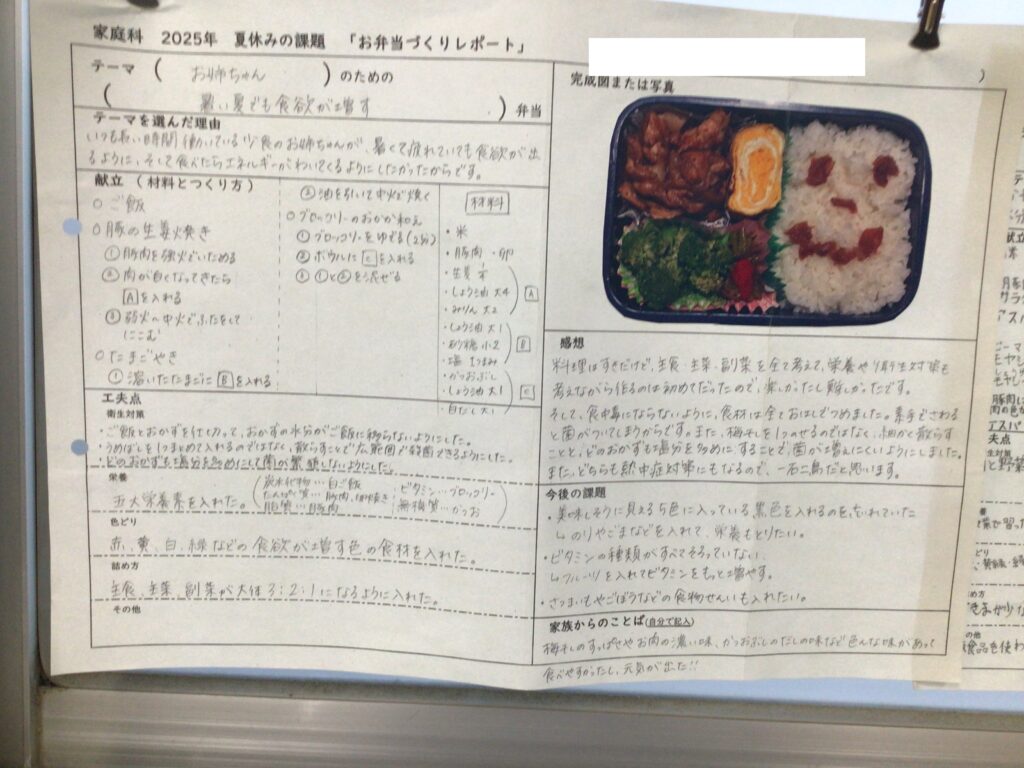 家庭科　2025年　夏休みの課題　「お弁当づくりレポート」
テーマ（　お姉ちゃん　）のための
（　暑い夏でも食欲が増す　）弁当
テーマを選んだ理由
いつも長い時間働いている少食のお姉ちゃんが、暑くて疲れていても食欲が出
るように、そして食べたらエネルギーがわいてくるようにしたかったからです。
献立（材料とつくり方）
○ご飯
○豚の生姜焼き
①豚肉を強火でいためる
②肉が白くなってきたら
Aを入れる
③弱火の中火でふたをして
にこむ
○たまごやき
①溶いたたまごにBを入れる
②油を引いて中火で焼く
○ブロッコリーのおかか和え
①ブロッコリーをゆでる(2分)
②ボウルにCを入れる
③①と②を混ぜる
材料
・米
・豚肉　・卵
・生姜
・しょうゆ油 大4
・みりん 大2
A
・しょうゆ油 大1
・砂糖 小2
・塩 1つまみ
B
・かつおぶし
・しょうゆ油 大1
・白だし 大1
C
工夫点
衛生対策
・ご飯とおかずを仕切って、おかずの水分がご飯に移らないようにした。
・うめぼしを1つまとめて入れるのではなく、散らすことで広範囲で殺菌できるようにした。
・どのおかずも塩分を多めにして菌が繁殖しないようにした。
栄養
五大栄養素を入れた。
炭水化物…白ご飯
たんぱく質…豚肉、卵焼き
脂質…豚肉
ビタミン…ブロッコリー
無機質…かつお
色どり
赤、黄、白、緑などの食欲が増す色の食材を入れた。
詰め方
主食、主菜、副菜が大体3:2:1になるように入れた。
その他
完成図または写真
感想
料理はすきだけど、主食・主菜、副菜を全て考えて、栄養や衛生対策も
考えながら作るのは初めてだったので、楽しかったし難しかったです。
そして、食中毒にならないように、食材は全ておはしでつめました。素手でさわる
と菌がついてしまうからです。また、梅干しを1つのせるのではなく、細かく散らす
ことと、どのおかずも塩分を多めにすることで、菌が増えにくいようにしました。
また、どちらも熱中症対策にもなるので、一石二鳥だと思います。
今後の課題
・美味しそうに見える5色に入っている黒色を入れるのを忘れていた
↳のりやごまなどを入れて、栄養もとりたい。
・ビタミンの種類がすべてそろっていない、
↳フルーツを入れてビタミンをもっと増やす。
・さつまいもやごぼうなどの食物せんいも入れたい。
家族からのことば(自分で記入)
梅干しのすっぱさやお肉の濃い味、かつおぶしのだしの味など色んな味があって
食べやすかったし、元気が出た!!